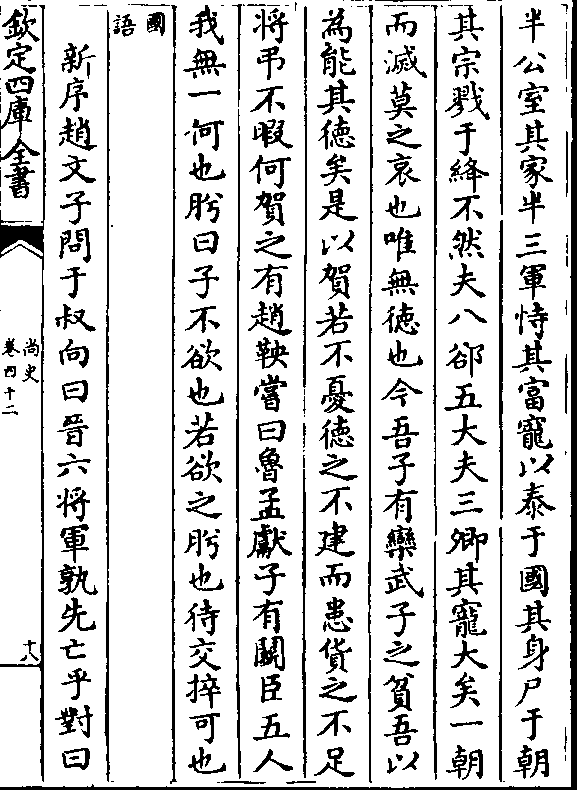 半公室其家半三軍恃其富寵以泰于國其身尸于朝
其宗戮于絳不然夫八郤五大夫三卿其寵大矣一朝
而滅莫之哀也唯無徳也今吾子有欒武子之貧吾以
為能其徳矣是以賀若不憂徳之不建而患貨之不足
将弔不暇何賀之有趙鞅嘗曰魯孟獻子有鬭臣五人
我無一何也肹曰子不欲也若欲之肹也待交捽可也
國語
新序趙文子問于叔向曰晉六将軍孰先亡乎對曰
欽定四庫全書
尚史
卷四十二
十八